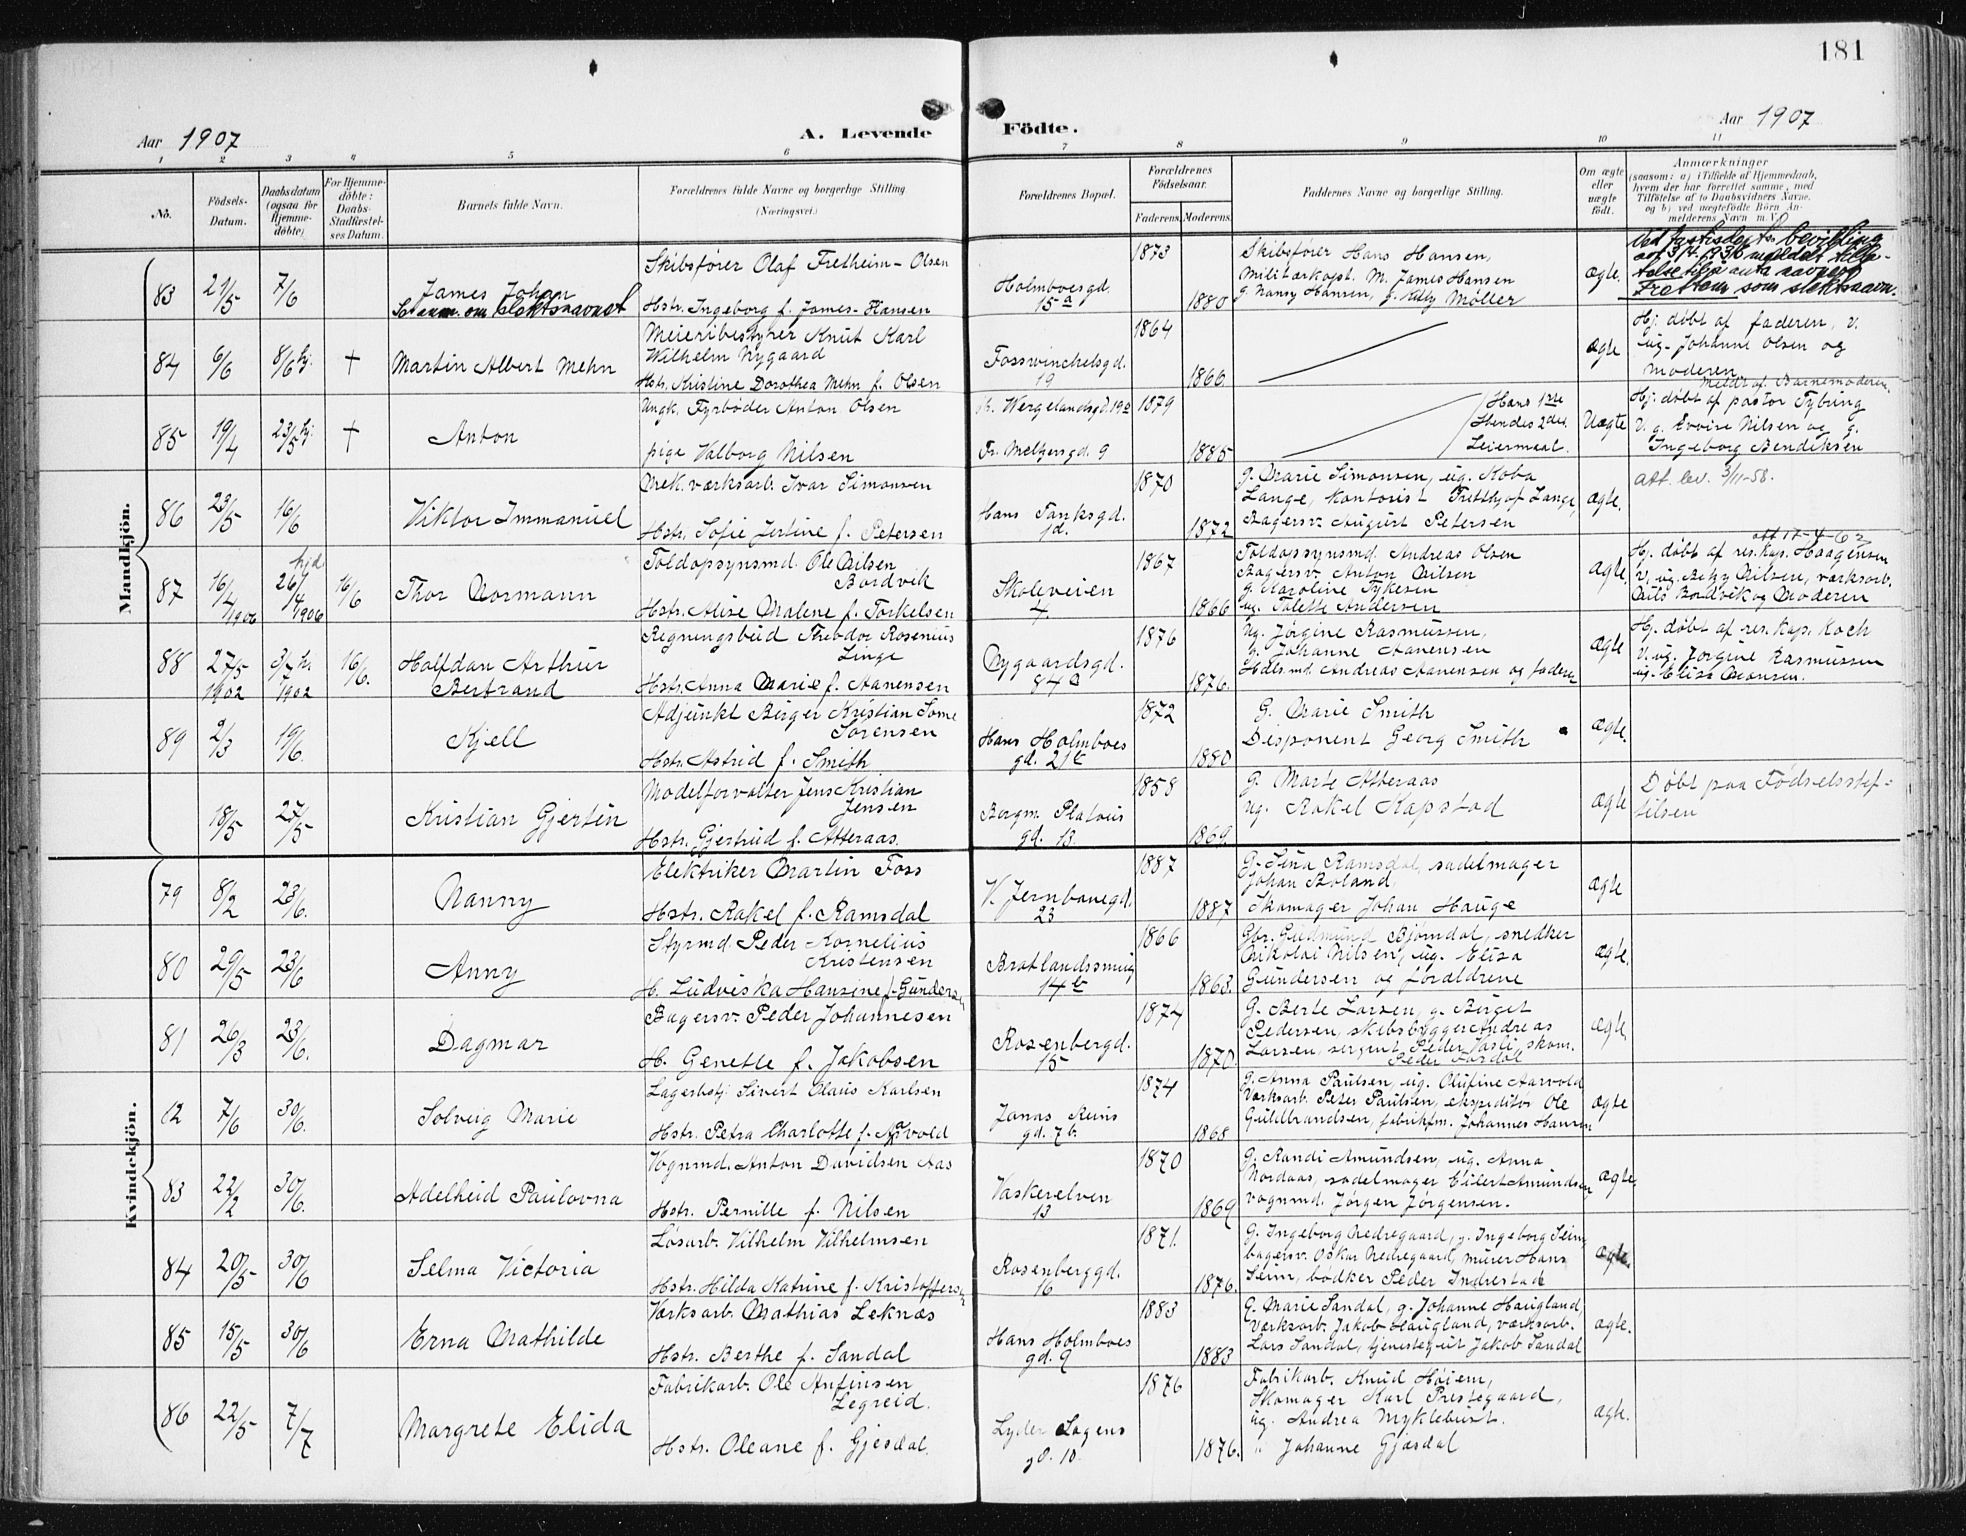 181
Aar 1907
A. Levende Födte.
Aar 1907
1 2 3 4 5 6 7 8 9 10 11
No.
Födsels-
Datum.
Daabsdatum
(ogsaa for
Hjemme-
döbte)
For Hjemme-
döbte:
Daabs-
Stadfæstel-
ses Datum.
Barnets fulde Navn.
Forældrenes fulde Navne og borgerlige Stilling
(Næringsvei.)
Forældrenes Bopæl.
Forældrenes
Födselsaar.
Faderens. Moderens.
Faddernes Navne og borgerlige Stilling.
Om ægte
eller
uægte
födt.
Anmærkninger
(saasom: a) i Tilfælde af Hjemmedaab,
hvem der har forrettet samme, med
Tilföielse af to Daabsvidners Navne,
og b) ved uægtefödte Börn An-
melderens Navn m. V.)
Mandkjön.
83 21/5 7/6
James Johan
Se anm. om slektsnavnet
Skibsfører Olaf Fretheim-Olsen
Hstr. Ingeborg f. James-Hansen
Holmboesgd.
15a
1873
1880
Skibsfører Hans Hansen,
Militærkapt. M. James Hansen
g. Nanny Hansen, g. Møller
ægte.
Ved Justisdept.s bevilling
av 3/4 1936 meldt
Fretheim som slektsnavn.
84 6/6 8/6 hj. †
Martin Albert Mehn
Meieribestyrer Knut Karl
Wilhelm Nygaard
Hstr. Kristine Dorothea Mehn f. Olsen
Fosswinckelsgd.
19
1864
1866
ægte
Hj. døbt af faderen, v.
ug. Johanne Olsen og
moderen.
85 19/4 23/5 hj. †
Anton
Ungk. Fyrbøder Anton Olsen
pige Valborg Nilsen
H. Wergelandsgd. 19a
Fr. Meltzersgd. 9
1879
1885
Hans 1ste
Hendes 2det
Leiermaal.
Uægte
Meldt af Barnemoderen
Hj. døbt af pastor Tybring
V. g. Nilsen og g.
Ingeborg Bendiksen
86 23/5 16/6
Viktor Immanuel
Mek. værksarb. Ivar Simonsen
Hstr. Sofie Jertine f. Petersen
Hans Tanksgd.
1d.
1870
1872
g. Marie Simonsen, ug. Koba
Lange, kontorist Fritthjof Lange,
Bagersv. August Petersen
ægte.
att. lev. 3/11-58.
87 16/4 1906 hjd. 26/4 1906 16/6
Thor Normann
Toldopsynsmd. Ole Nilsen
Bordvik
Hstr. Alise Malene f. Torkelsen
Skoleveien
4.
1867
1866
Toldopsynsmd. Andreas Olsen
Bagersv. Anton Nilsen
g. Karoline Tykesen
ug. Talette Andersen
ægte.
att 17-4-62
Hj. døbt af res. kap. Haagensen
V. ug. Betzy Nilsen, værksarb.
Nils Bordvik og Moderen
88 27/5 1902 3/7 hj. 1902 16/6.
Halfdan Arthur
Bertrand
Regningsbud Theodor Rosenius
Linge
Hstr. Anna Marie f. Aanensen
Nygaardsgd.
84 a
1876
1876.
ug. Jørgine Rasmussen,
g. Johanne Aanensen
Hdlsmd. Andreas Aanensen og faderen
ægte
Hj. døbt af res. kap. Koch
V. ug. Jørgine Rasmussen
ug. Elisa Monsen.
89 2/3 19/6.
Kjell
Adjunkt Birger Kristian Some
Sørensen
Hstr. Astrid f. Smith
Hans Holmboes
gd. 21b
1872
1880
G. Marie Smith
Disponent Georg Smith
ægte.
18/5 27/5
Kristian Gjertin
Modelforvalter Jens Kristian
Jensen
Hstr. Gjertrud f. Atteraas.
Bergm. Platous
gd. 13.
1858
1869.
G. Marte Atteraas
ug. Rakel Kapstad
ægte
Døbt paa Fødselsstif-
tilsen
Kvindekjön.
79 8/2 23/6.
Nanny
Elektriker Martin Foss
Hstr. Rakel f. Ramsdal
V. Jernbanegd.
23
1887
1887
G. Sina Ramsdal, sadelmager
Johan Boland,
Skomager Johan Hauge
ægte
80 29/5 23/6
Anny
Styrmd. Peder Kornelius
Kristensen
H. Ludviska Hansine f. Gundersen
Bratlandssmug
14b
1866
1863.
Gbr. Gudmund Bjørndal, snedker
Nikolai Nilsen, ug. Elisa
Gundersen og forældrene
ægte.
81 26/3 23/6.
Dagmar
Bagersv. Peder Johannesen
H. Genette f. Jakobsen
Rosenbergd.
15
1874
1870.
G. Berte Larsen, g. Berget
Pedersen, skibsbygger Andreas
Larsen, sergent Peder Jasti, skom.
Peder Fardal
ægte
12 7/6 30/6.
Solveig Marie
Lagerbstj. Sivert Olaus Karlsen
Hstr. Petra Charlotte f. Arvold
Jonas Reins
gd. 7b.
1874
1868
g. Anna Paulsen, ug. Olufine Aarvold
Værksarb. Peter Paulsen, ekspeditør Ole
Guldbrandsen, fabrikfm. Johannes Hansen
ægte
83 22/2 30/6.
Adelheid Paulovna
Vognmd. Anton Davidsen Aas
Hstr. Pernille f. Nilsen
Vaskerelven
13
1870
1869
G. Randi Amundsen, ug. Anna
Nordaas, sadelmager Eilert Amundsen
vognmd. Jørgen Jørgensen.
ægte
84 20/5 30/6
Selma Victoria
Løsarb. Vilhelm Vilhelmsen
Hstr. Hilda Katrine f. Kristoffersen
Rosenberggd.
16
1871.
1876.
G. Ingeborg Nedregaard, g. Ingeborg Seim
bagersv. Oskar Nedregaard, murer Hans
Seim, bødker Peder Indrestad
ægte.
85 15/5 30/6
Erna Mathilde
Værksarb. Mathias Leknæs
Hstr. Berthe f. Sandal
Hans Holmboes
gd. 9
1883
1883
G. Marie Sandal, g. Johanne Haugland,
Værksarb. Jakob Haugland, værksarb.
Lars Sandal, tjenestegut Jakob Sandal
ægte.
86 22/5 7/7
Margrete Elida
Fabrikarb. Ole Anfinsen
Legreid.
Hstr. Oleane f. Gjesdal.
Lyder Sagens
gd. 10.
1876
1876.
Fabrikarb. Knud Høiem,
Skomager Karl Prestegaard,
ug. Andrea Myklebust.
" Johanne Gjesdal
ægte.